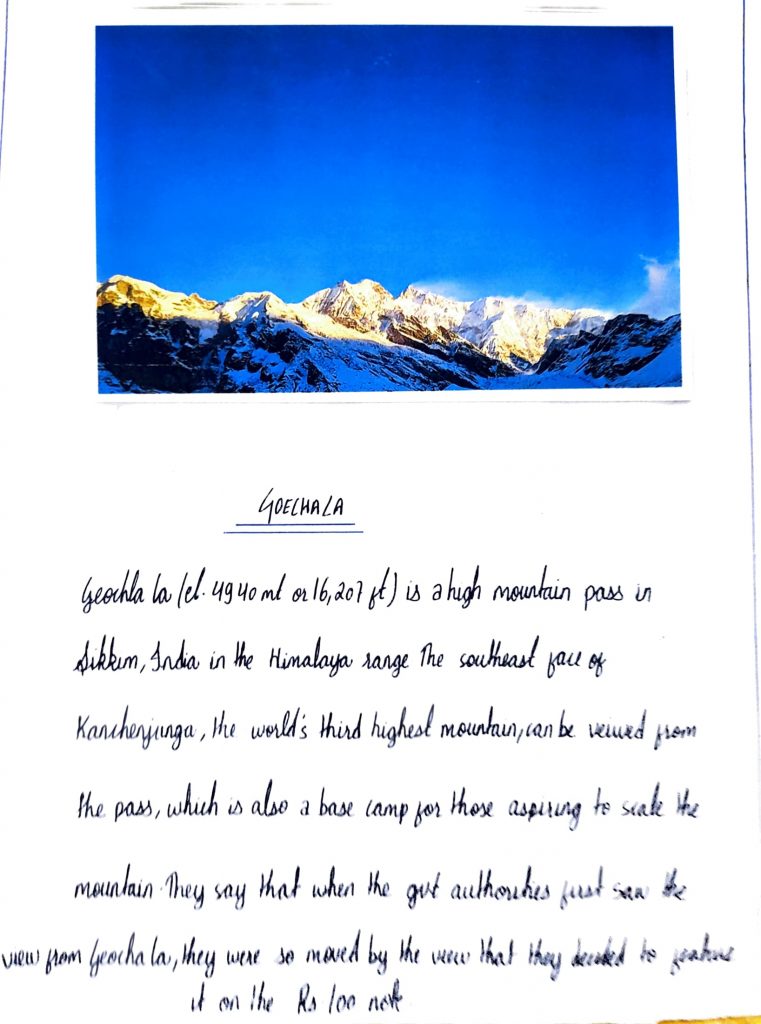 GOECHALA
Geochla la (el. 4940 mt or 16,207 ft) is a high mountain pass in
Sikkim, India in the Himalaya range The southeast face of
Kanchenjunga, the world's third highest mountain, can be veiwed from
the pass, which is also a base camp for those aspiring to scale the
mountain. They say that when the gvt authorities first saw the
view from Geocha la, they were so moved by the view that they decided to feature
it on the Rs 100 note.